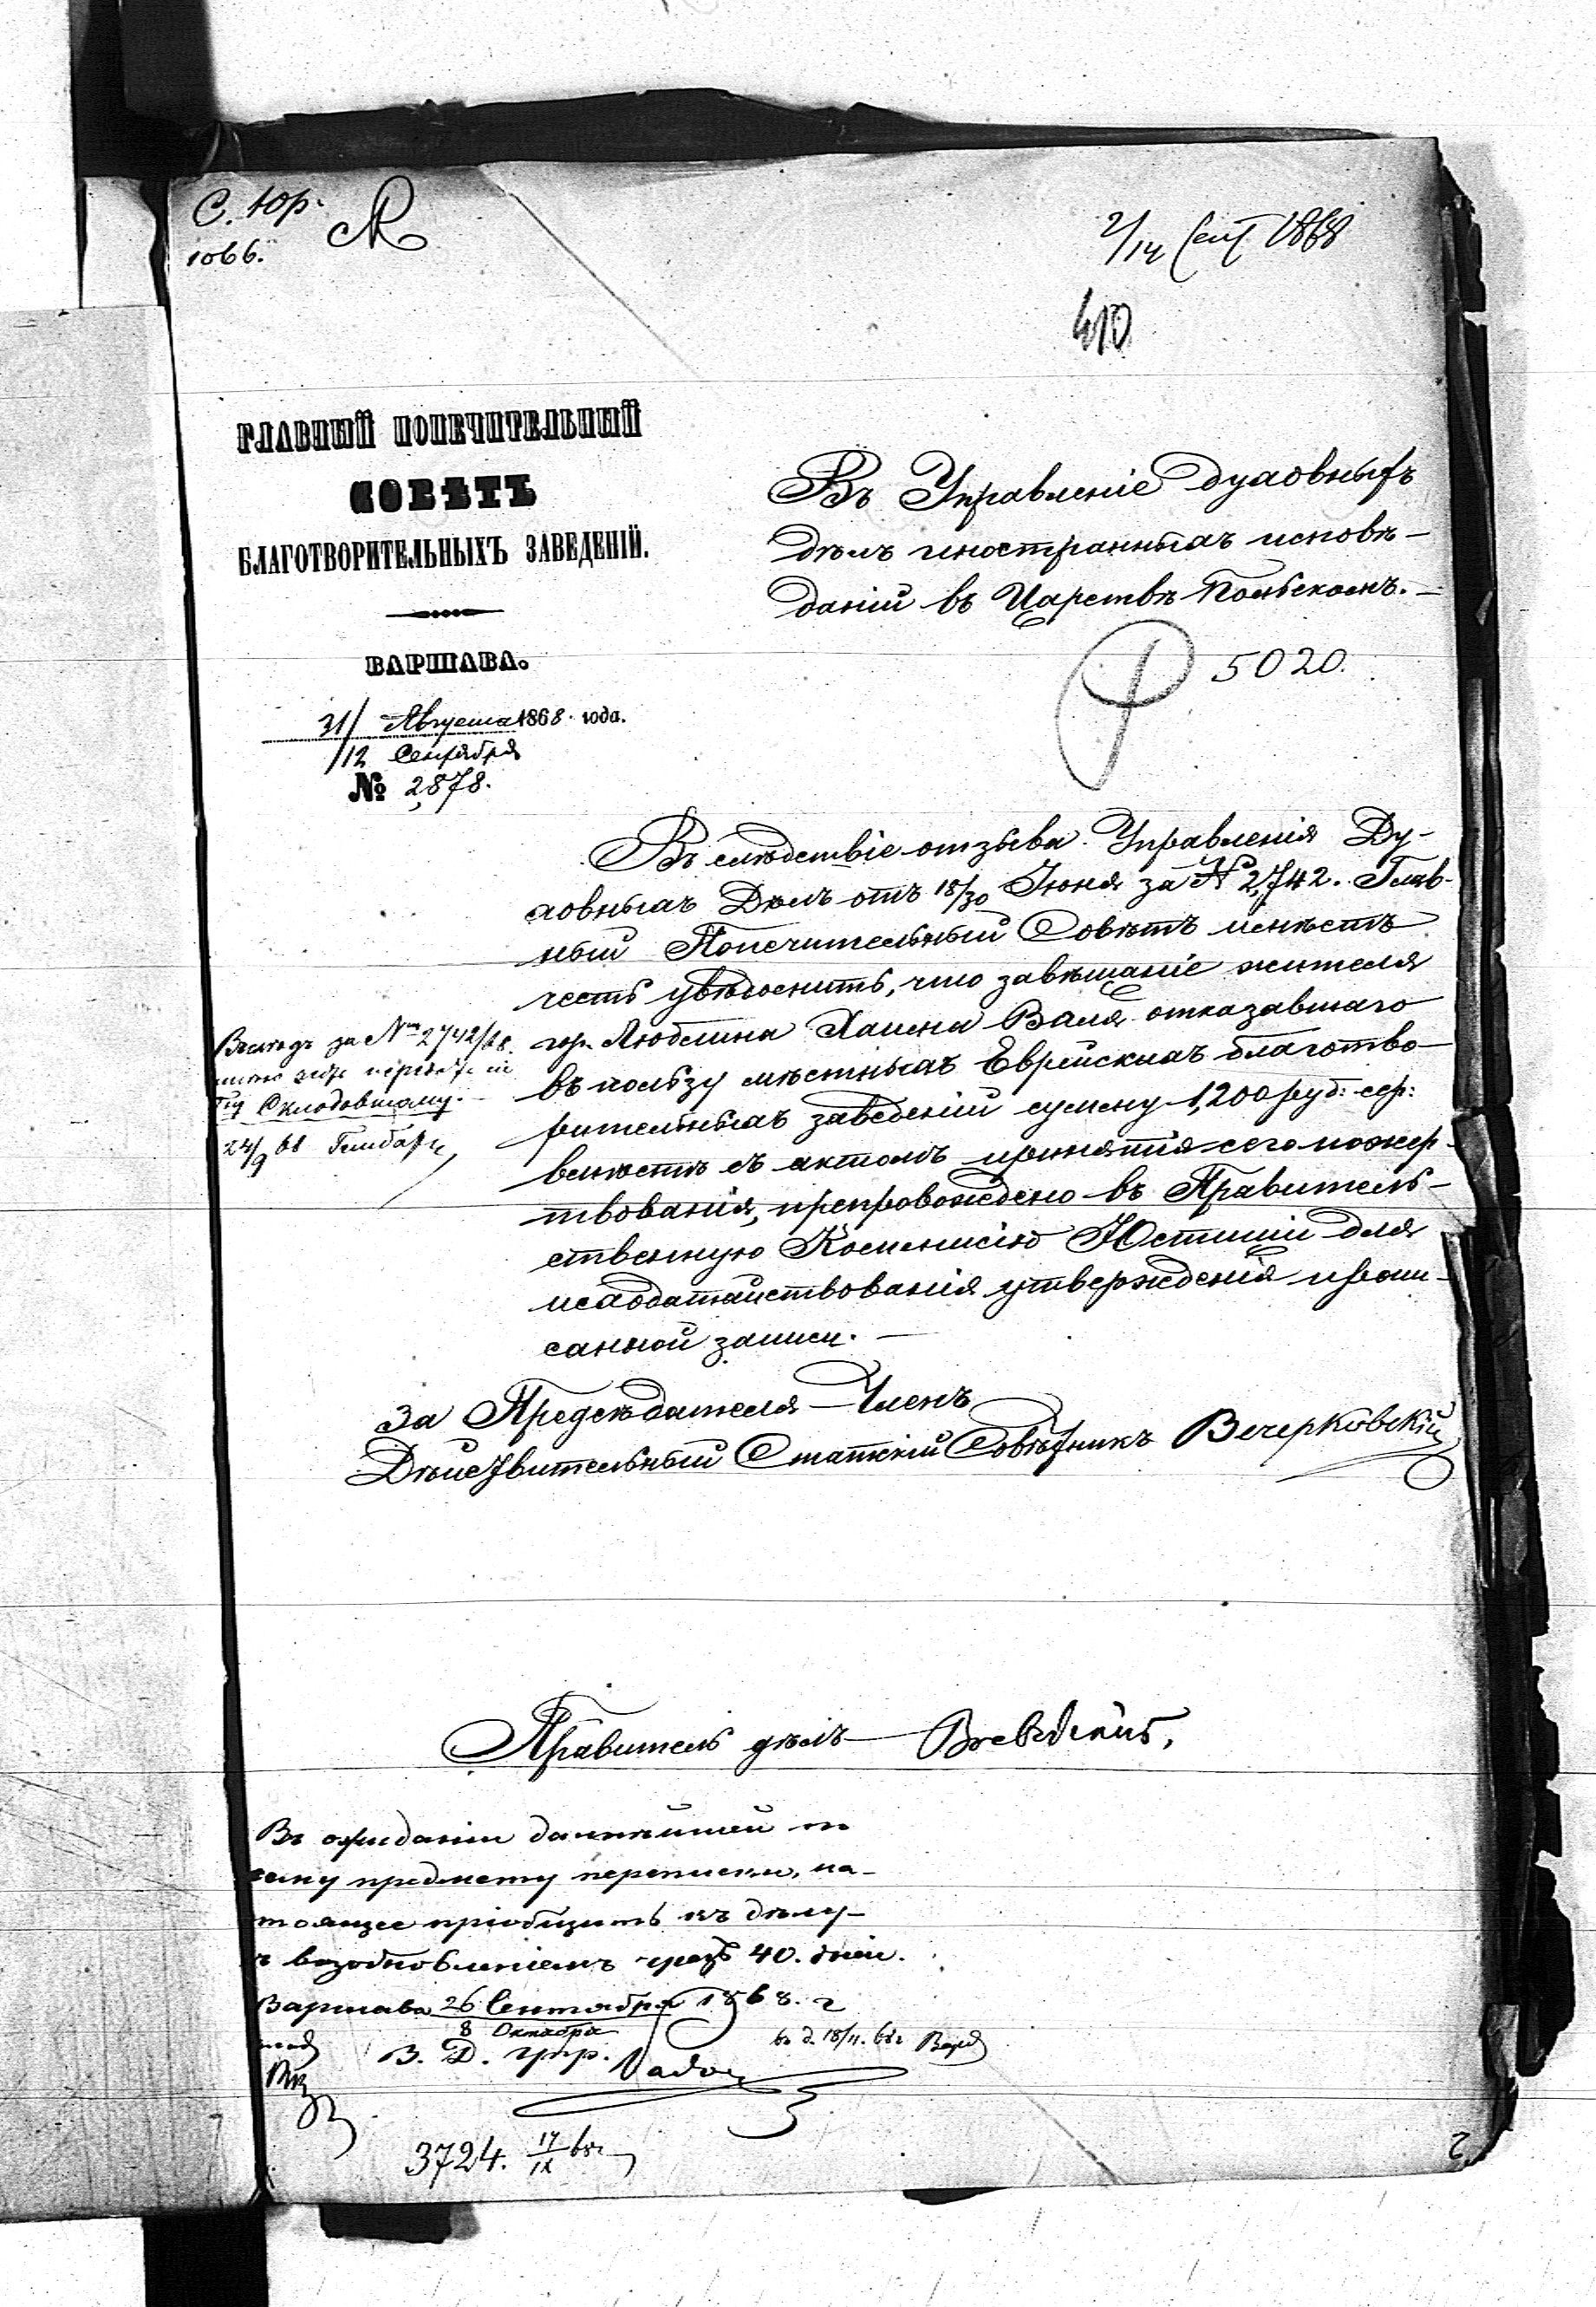 С. Юр.
1066.
2/14 Сент 1868
410
ГЛАВНЫЙ ПОПЕЧИТЕЛЬНЫЙ
СОВѢТЪ
БЛАГОТВОРИТЕЛЬНЫХЪ ЗАВЕДЕНІЙ.
ВАРШАВА.
31/ Августа 1868 года.
/12 Сентября
№ 2,878.
Въ Управленіе духовныхъ
дѣлъ иностранныхъ исповѣ-
даній въ Царствѣ Польскомъ.-
5020.
Въ слѣдствіе отзыва Управленія Ду-
ховныхъ Дѣлъ отъ 18/30 Іюня за № 2,742. Глав-
ный Попечительный Совѣтъ имѣетъ
честь увѣдомить, что завѣщаніе жителя
гор. Люблина Хаима Валя отказавшаго
въ пользу мѣстныхъ Еврейскихъ благотво-
рительныхъ заведеній сумму 1,200 руб: сер:
вмѣстѣ съ актомъ принятія сего пожер-
твованія, препровождено въ Правитель-
ственную Коммисію Юстиціи для
исходатайствованія утвержденія пропи-
санной записи.-
за № 2742/68.
24/9 68
За Предсѣдателя - Членъ
Дѣйствительный Статскій Совѣтникъ Вечерковскій
Правитель дѣлъ
Въ ожиданіи дальнѣйшей по
сему предмету переписки, на-
тоящее пріобщить къ дѣлу
ъ возобновленіемъ чрезъ 40. дней.
Варшава 26 Сентября 1868. г
8 Октября
В. Д.
в. д. 18/11. 68г
3724. 17/IX 68г
2